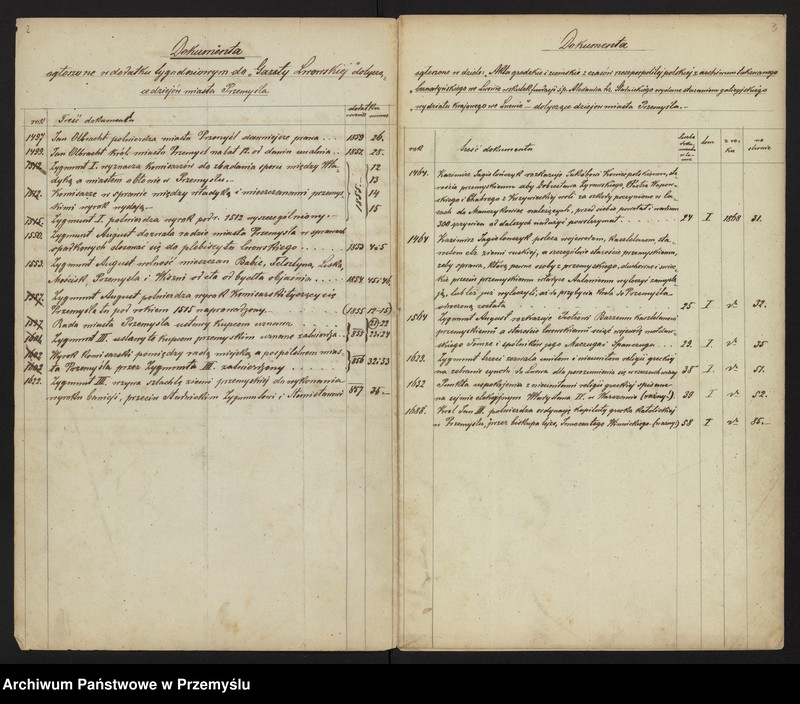 2
Dokumenta
ogłoszone w dodatku tygodniowym do „Gazety Lwowskiej" dotyczą-
ce dziejów miasta Przemyśla
rok Treść dokumentu dodatku
numer
1497. Jan Olbracht potwierdza miastu Przemyśl dawniejsze prawa 1853 26.
1499. Jan Olbracht król miasto Przemyśl na lat 12. od dania uwalnia 1852 25.
Zygmunt I. wyznacza komisarzów do zbadania sporu między Wła-
dyką a miastem o błonie w Przemyślu. 1855 12
13
Komisarze w sprawie między władyką i mieszczanami przemys-
kimi wyrok wydają. 14
Zygmunt I. potwierdza wyrok pod r. 1512 wyszczególniony. 15
1550. Zygmunt August dozwala radzie miasta Przemyśla w sprawach
spadkowych stosować się do plebiscytu lwowskiego 1853
1553. Zygmunt August wolność mieszczan Babic, Felsztyna, Leska,
Mościsk, Przemyśla i od cła od bydła objaśnia. 1854 45.46.
Zygmunt August, potwierdza wyrok Komisarski tyczący się
Przemyśla tu pod rokiem 1515 naprowadzony (1855 12-15)
Rada miasta Przemyśla ustawy kupcom uznawa 21.22
Zygmunt III. ustawy te kupcom przemyskim uznane zatwierdza 23.24
Wyrok komisarski pomiędzy radą miejską a pospólstwem mias-
ta Przemyśla przez Zygmunta III. zatwierdzony 856 32:33
Zygmunt III. wzywa szlachtę ziemi przemyskiej do wykonania
wyroku banicyi, przeciw Stadnickim Zygmuntowi i Stanisławowi 857 35.
3
Dokumenta
ogłoszone w dziele: „Akta grodzkie i ziemskie z czasów rzeczypospolitej polskiej z archiwum tak zwanego
bernardyńskiego we Lwowie wskutek fundacyi ś.p. Aleksandra hr. Stadnickiego wydane staraniem galicyjskiego
wydziału krajowego we Lwowie" – dotyczące dziejów miasta Przemyśla.
rok treść dokumentu liczba tom z ro-
ku na
stronie
1464. Kazimierz Jagielończyk rozkazuje Jakóbowi Koniecpolskiemu, sta-
roście przemyskiemu aby Dobiesława Żyrowskiego,
z Krzywieckiej woli za szkody poczynione w la-
sach do należących, przed siebie powołał i wadium
300 grzywien od dalszych nadużyć powstrzymał 24 I 1868 31.
1464 Kazimierz Jagielończyk poleca wojewodom, kasztelanom, sta-
rostom etc. ziemi ruskiej, a szczególnie staroście przemyskiemu,
żeby sprawa, którą pewne osoby z przemyskiego, duchowne i świec-
kie przeciw przemyskiemu władyce wytoczyć zamyśla-
ją, lub też już wytoczyli, aż do przybycia króla do Przemyśla
odroczoną została 25 I dto 32.
1564 Zygmunt August rozkazuje Barzemu kasztelanowi
przemyskiemu a staroście lwowskiemu ściąć wojewodę mołdaw-
skiego Tomżę i spólników jego Moczuga i Spanczoga 23. I dto 35
1629. Zygmunt trzeci zezwala unitom i nieunitom religii greckiej
na zebranie synodu do Lwowa dla porozumienia się w rzeczach wiary 38 I dto 51.
1632 Punkta uspokojenia z nieunitami religii greckiej spisane
na sejmie elekcyjnym Władysława IV. w Warszawie (ważny!) 39 I dto 52.
1688. Król Jan III. potwierdza erekcyję kapituły grecko katolickiej
w Przemyślu, przez biskupa tejże, Innocentego Winnickiego (ważny!) 58 I dto 85.
Archiwum Państwowe w Przemyślu